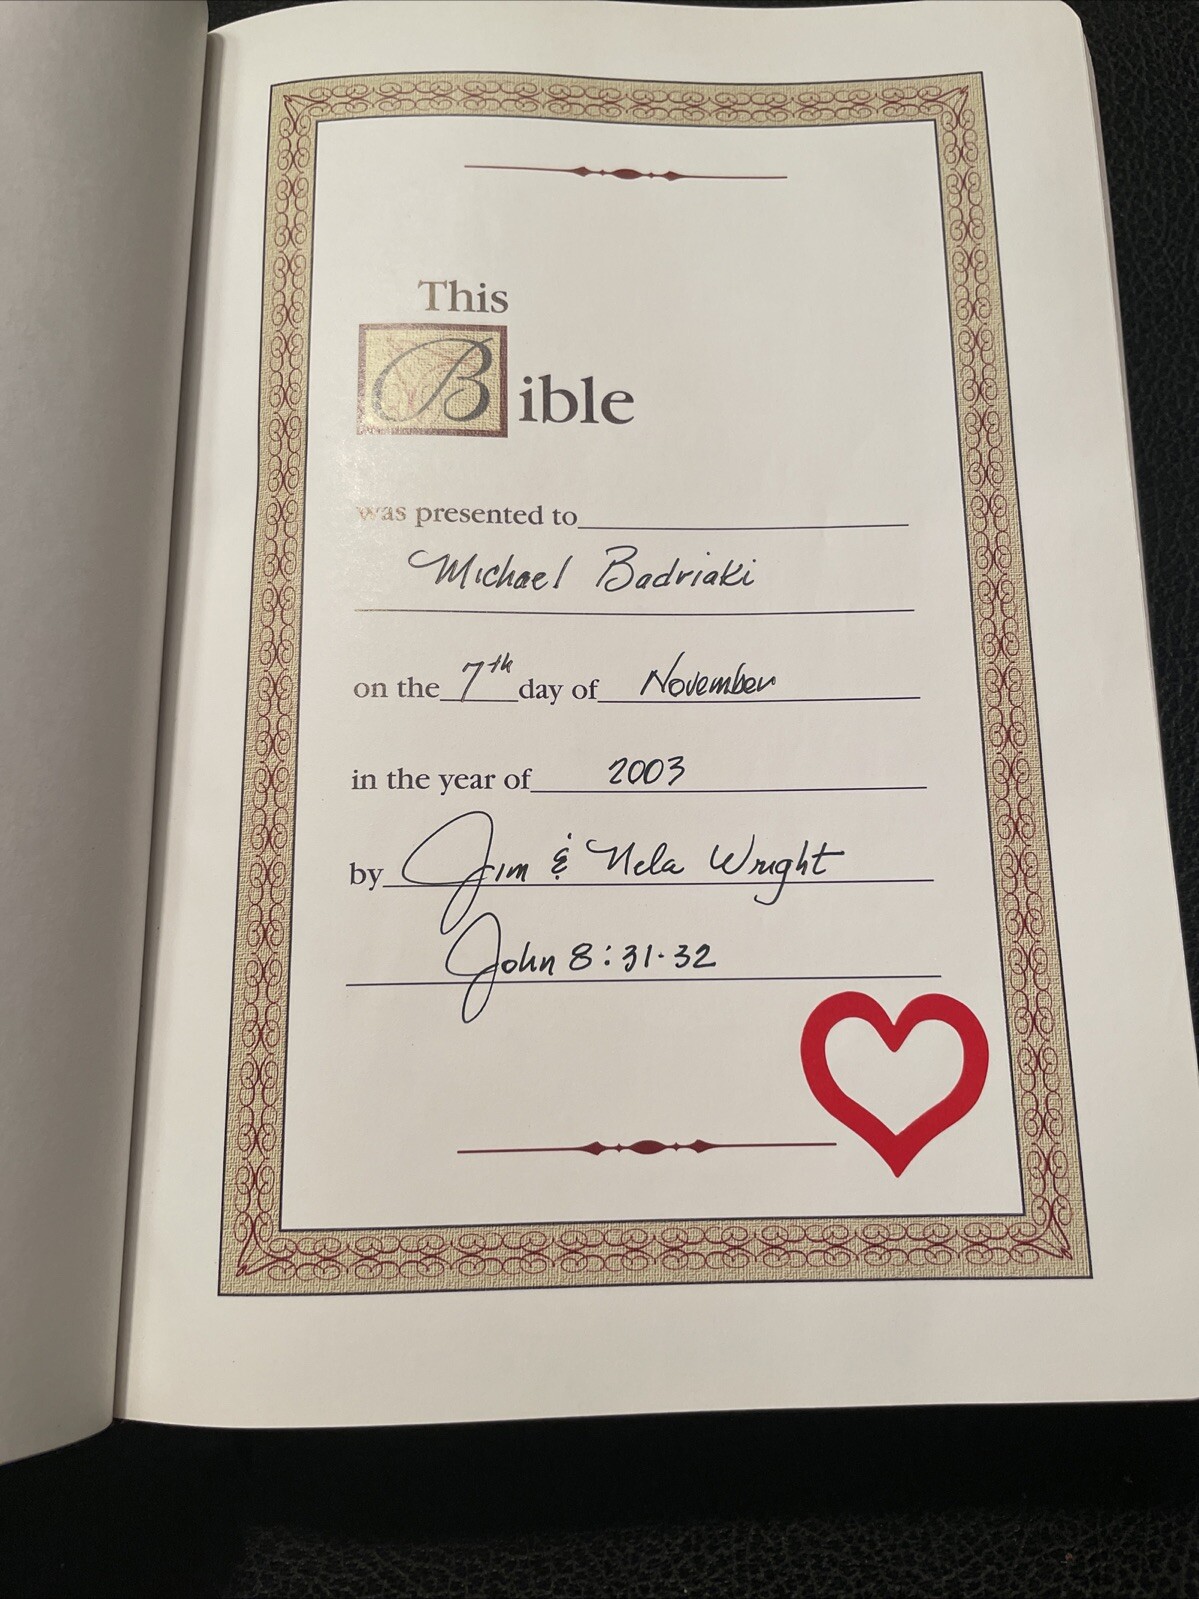 This
Bible
was presented to
Michael Badriaki
on the 7th day of November
in the year of 2003
by Jim & Nela Wright
John 8:31-32